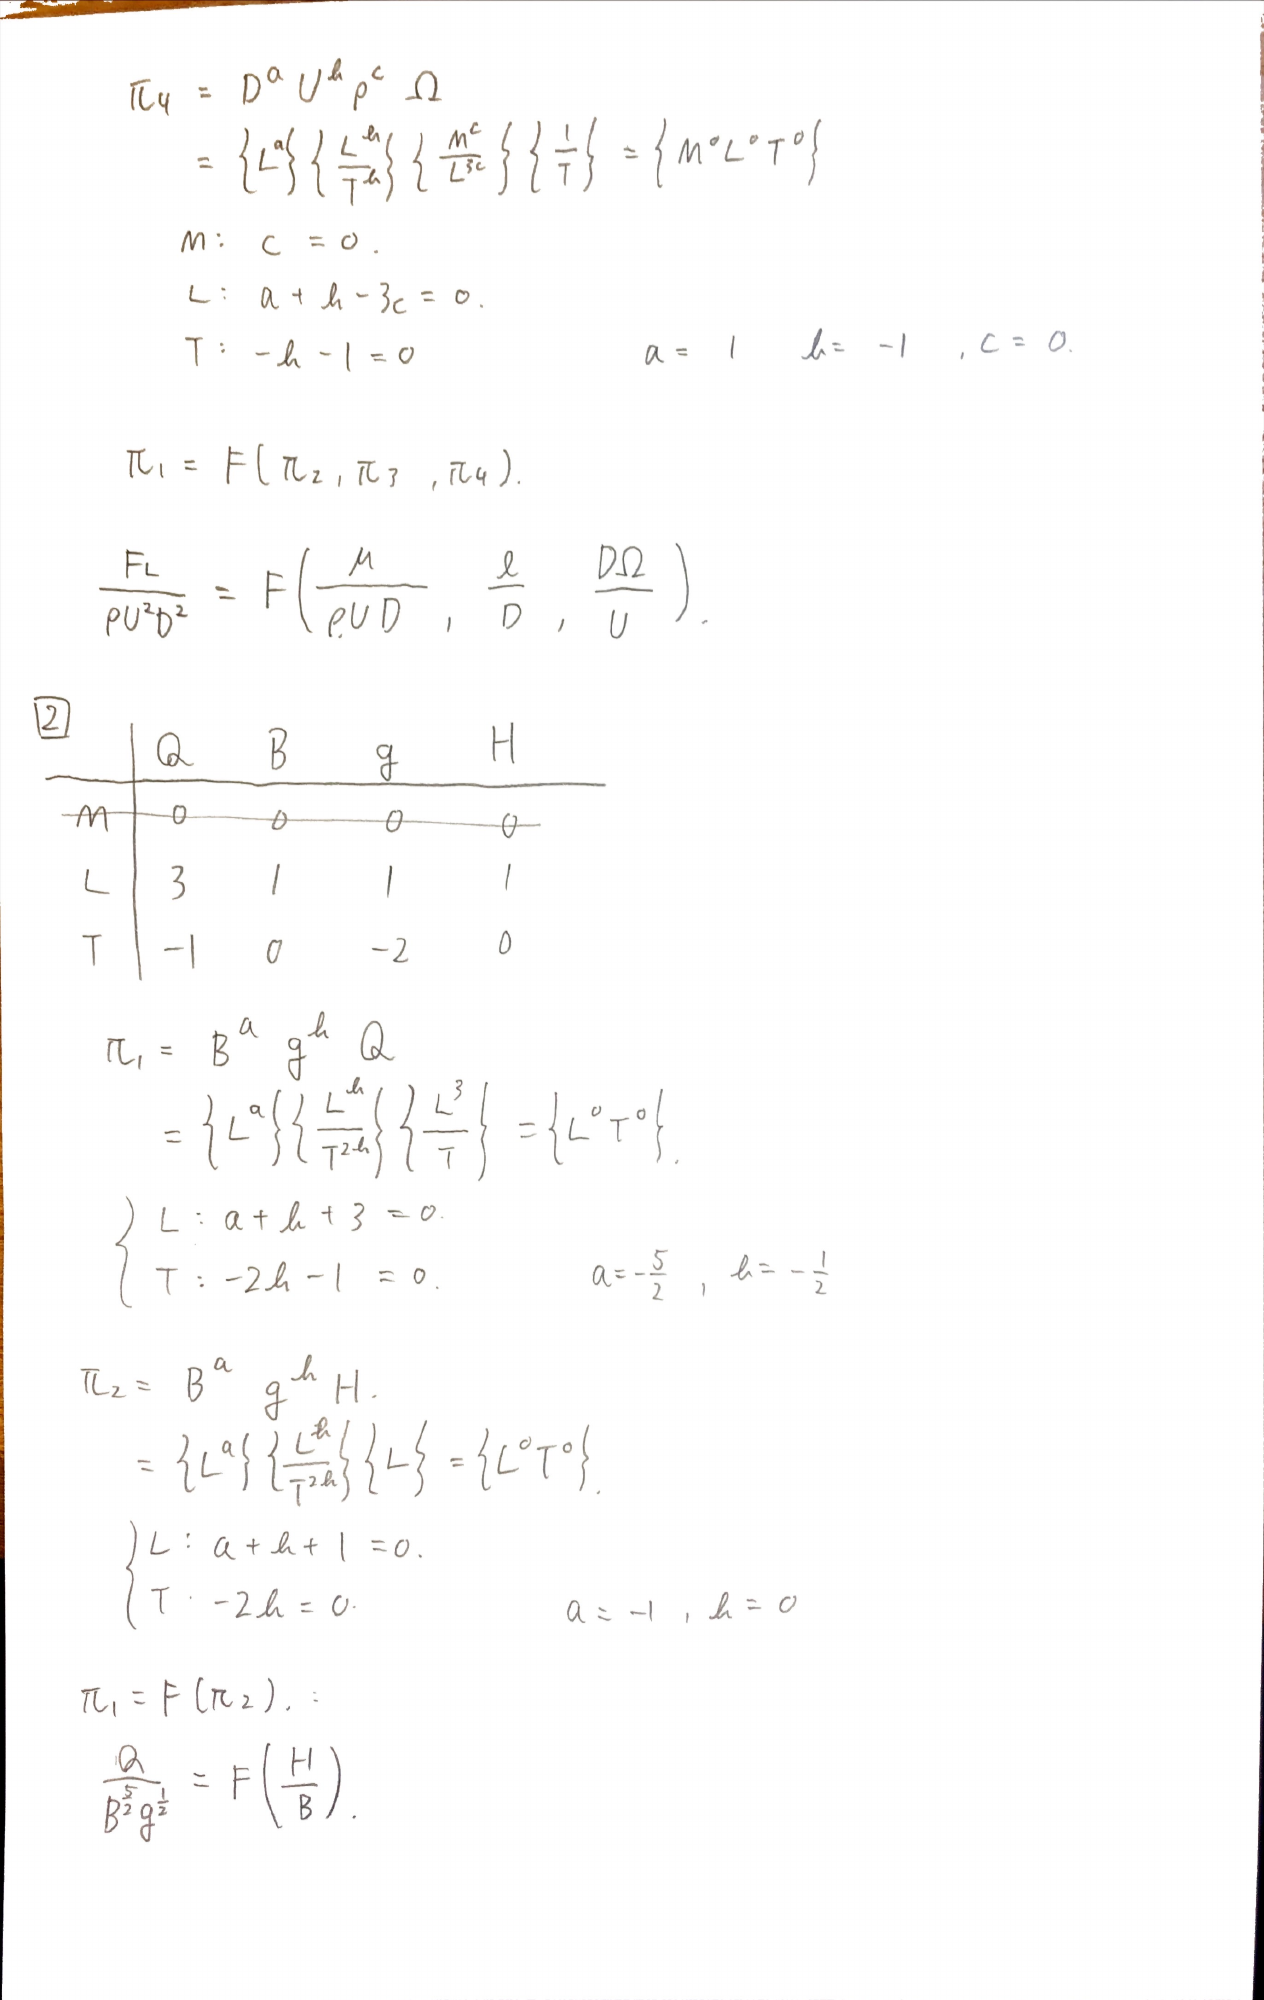 π₄ = Dᵃ Uᵇ ρᶜ Ω
= {Lᵃ} {Lᵇ/Tᵇ} {Mᶜ/L³ᶜ} {1/T} = {M⁰L⁰T⁰}
M: c = 0.
L: a + b - 3c = 0.
T: -b - 1 = 0 a = 1 b = -1 , c = 0.
π₁ = F(π₂, π₃, π₄).
F_L/(ρU²D²) = F(μ/(ρUD), l/D, DΩ/U).
2
Q B g H
M 0 0 0 0
L 3 1 1 1
T -1 0 -2 0
π₁ = Bᵃ gᵇ Q
= {Lᵃ} {Lᵇ/T²ᵇ} {L³/T} = {L⁰T⁰}.
L: a + b + 3 = 0.
T: -2b - 1 = 0. a = -5/2 , b = -1/2
π₂ = Bᵃ gᵇ H.
= {Lᵃ} {Lᵇ/T²ᵇ} {L} = {L⁰T⁰}.
L: a + b + 1 = 0.
T: -2b = 0. a = -1 , b = 0
π₁ = F(π₂). :
Q/(B^(5/2) g^(1/2)) = F(H/B).